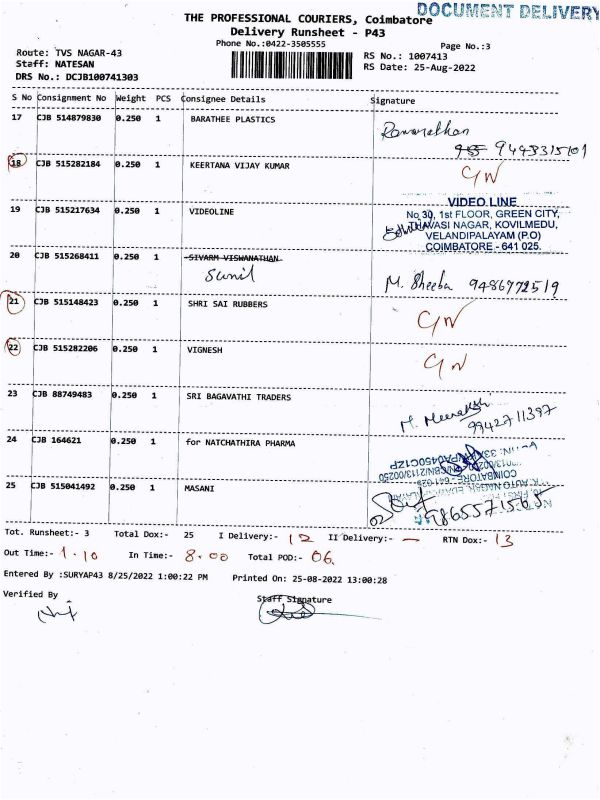 DOCUMENT DELIVERY
THE PROFESSIONAL COURIERS, Coimbatore
Delivery Runsheet - P43
Phone No.:0422-3505555
Page No.:3
Route: TVS NAGAR-43
RS No.: 1007413
Staff: NATESAN
RS Date: 25-Aug-2022
DRS No.: DCJB100741303
S No Consignment No Weight PCS Consignee Details Signature
17 CJB 514879830 0.250 1 BARATHEE PLASTICS
9443315101
18 CJB 515282184 0.250 1 KEERTANA VIJAY KUMAR
19 CJB 515217634 0.250 1 VIDEOLINE
VIDEO LINE
No 30, 1st FLOOR, GREEN CITY,
THAVASI NAGAR, KOVILMEDU,
VELANDIPALAYAM (P.O)
COIMBATORE - 641 025.
20 CJB 515268411 0.250 1 SIVARM VISWANATHAN
Sunil
M. Sheeba 9486772519
21 CJB 515148423 0.250 1 SHRI SAI RUBBERS
22 CJB 515282206 0.250 1 VIGNESH
23 CJB 88749483 0.250 1 SRI BAGAVATHI TRADERS
9942711397
24 CJB 164621 0.250 1 for NATCHATHIRA PHARMA
25 CJB 515041492 0.250 1 MASANI
Tot. Runsheet:- 3 Total Dox:- 25 I Delivery:- 12 II Delivery:- — RTN Dox:- 13
Out Time:- 1.10 In Time:- 8.00 Total POD:- 06
Entered By :SURYAP43 8/25/2022 1:00:22 PM Printed On: 25-08-2022 13:00:28
Verified By Staff Signature